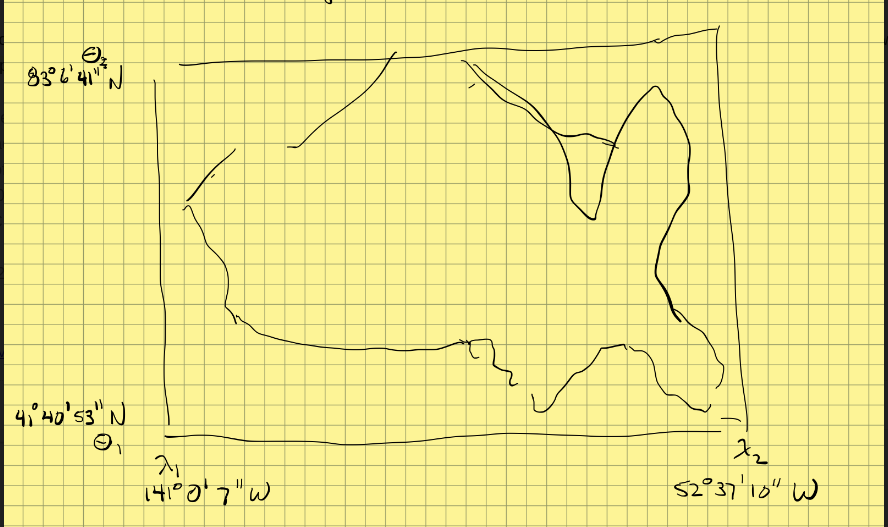 Θ₂
83° 6' 41" N
41° 40' 53" N
Θ₁
λ₁
141° 0' 7" W
λ₂
52° 37' 10" W